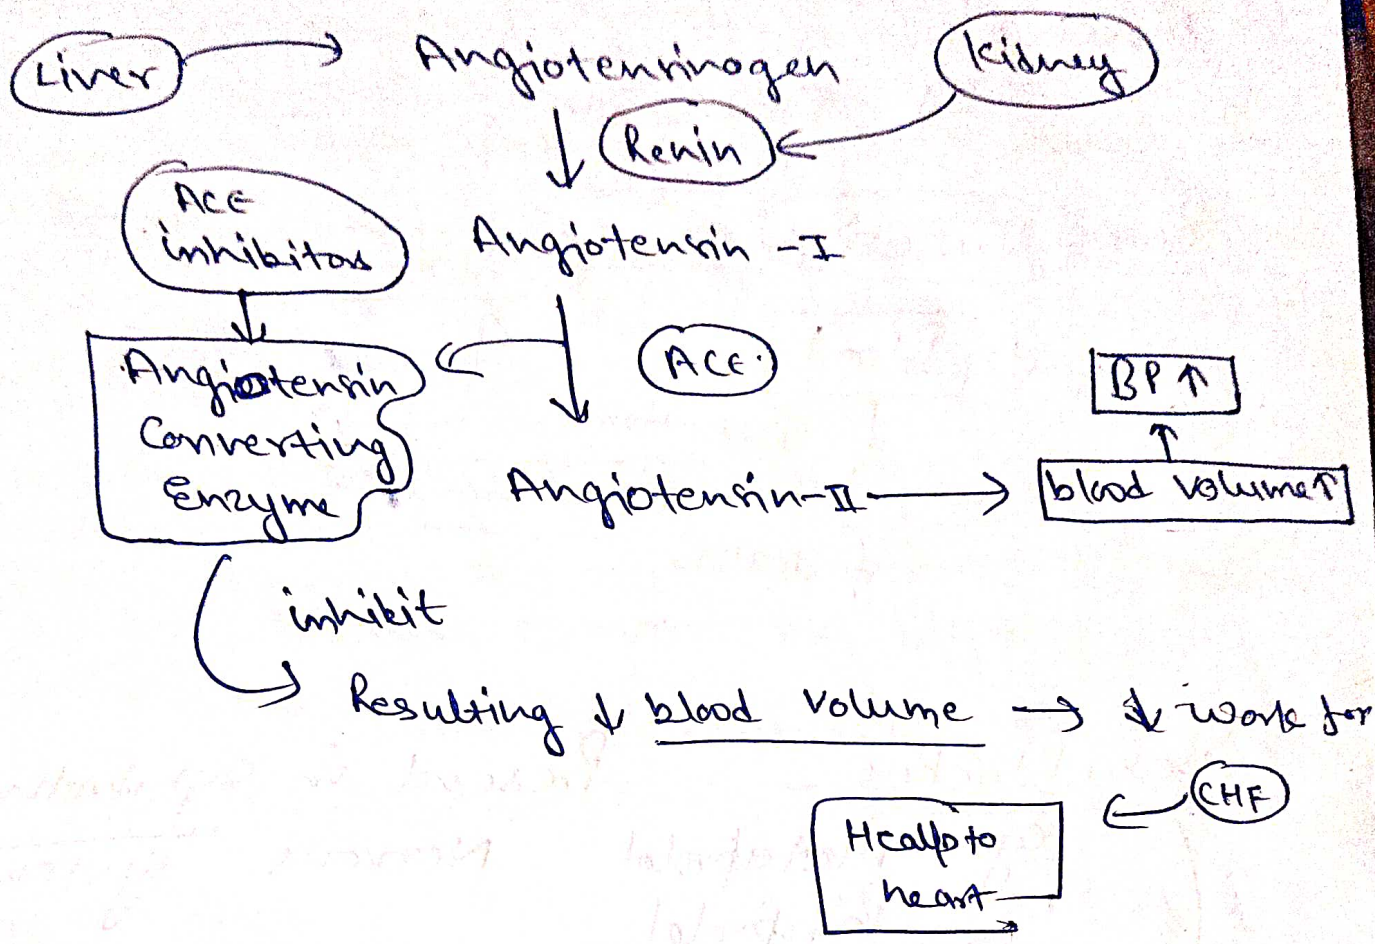 Liver → Angiotensinogen Kidney
↓ Renin
ACE
inhibitors
Angiotensin - I
ACE
Angiotensin
Converting
Enzyme
BP ↑
Angiotensin-II → blood volume↑
inhibit
Resulting ↓ blood volume → ↓ work for
CHF
Healp to
heart